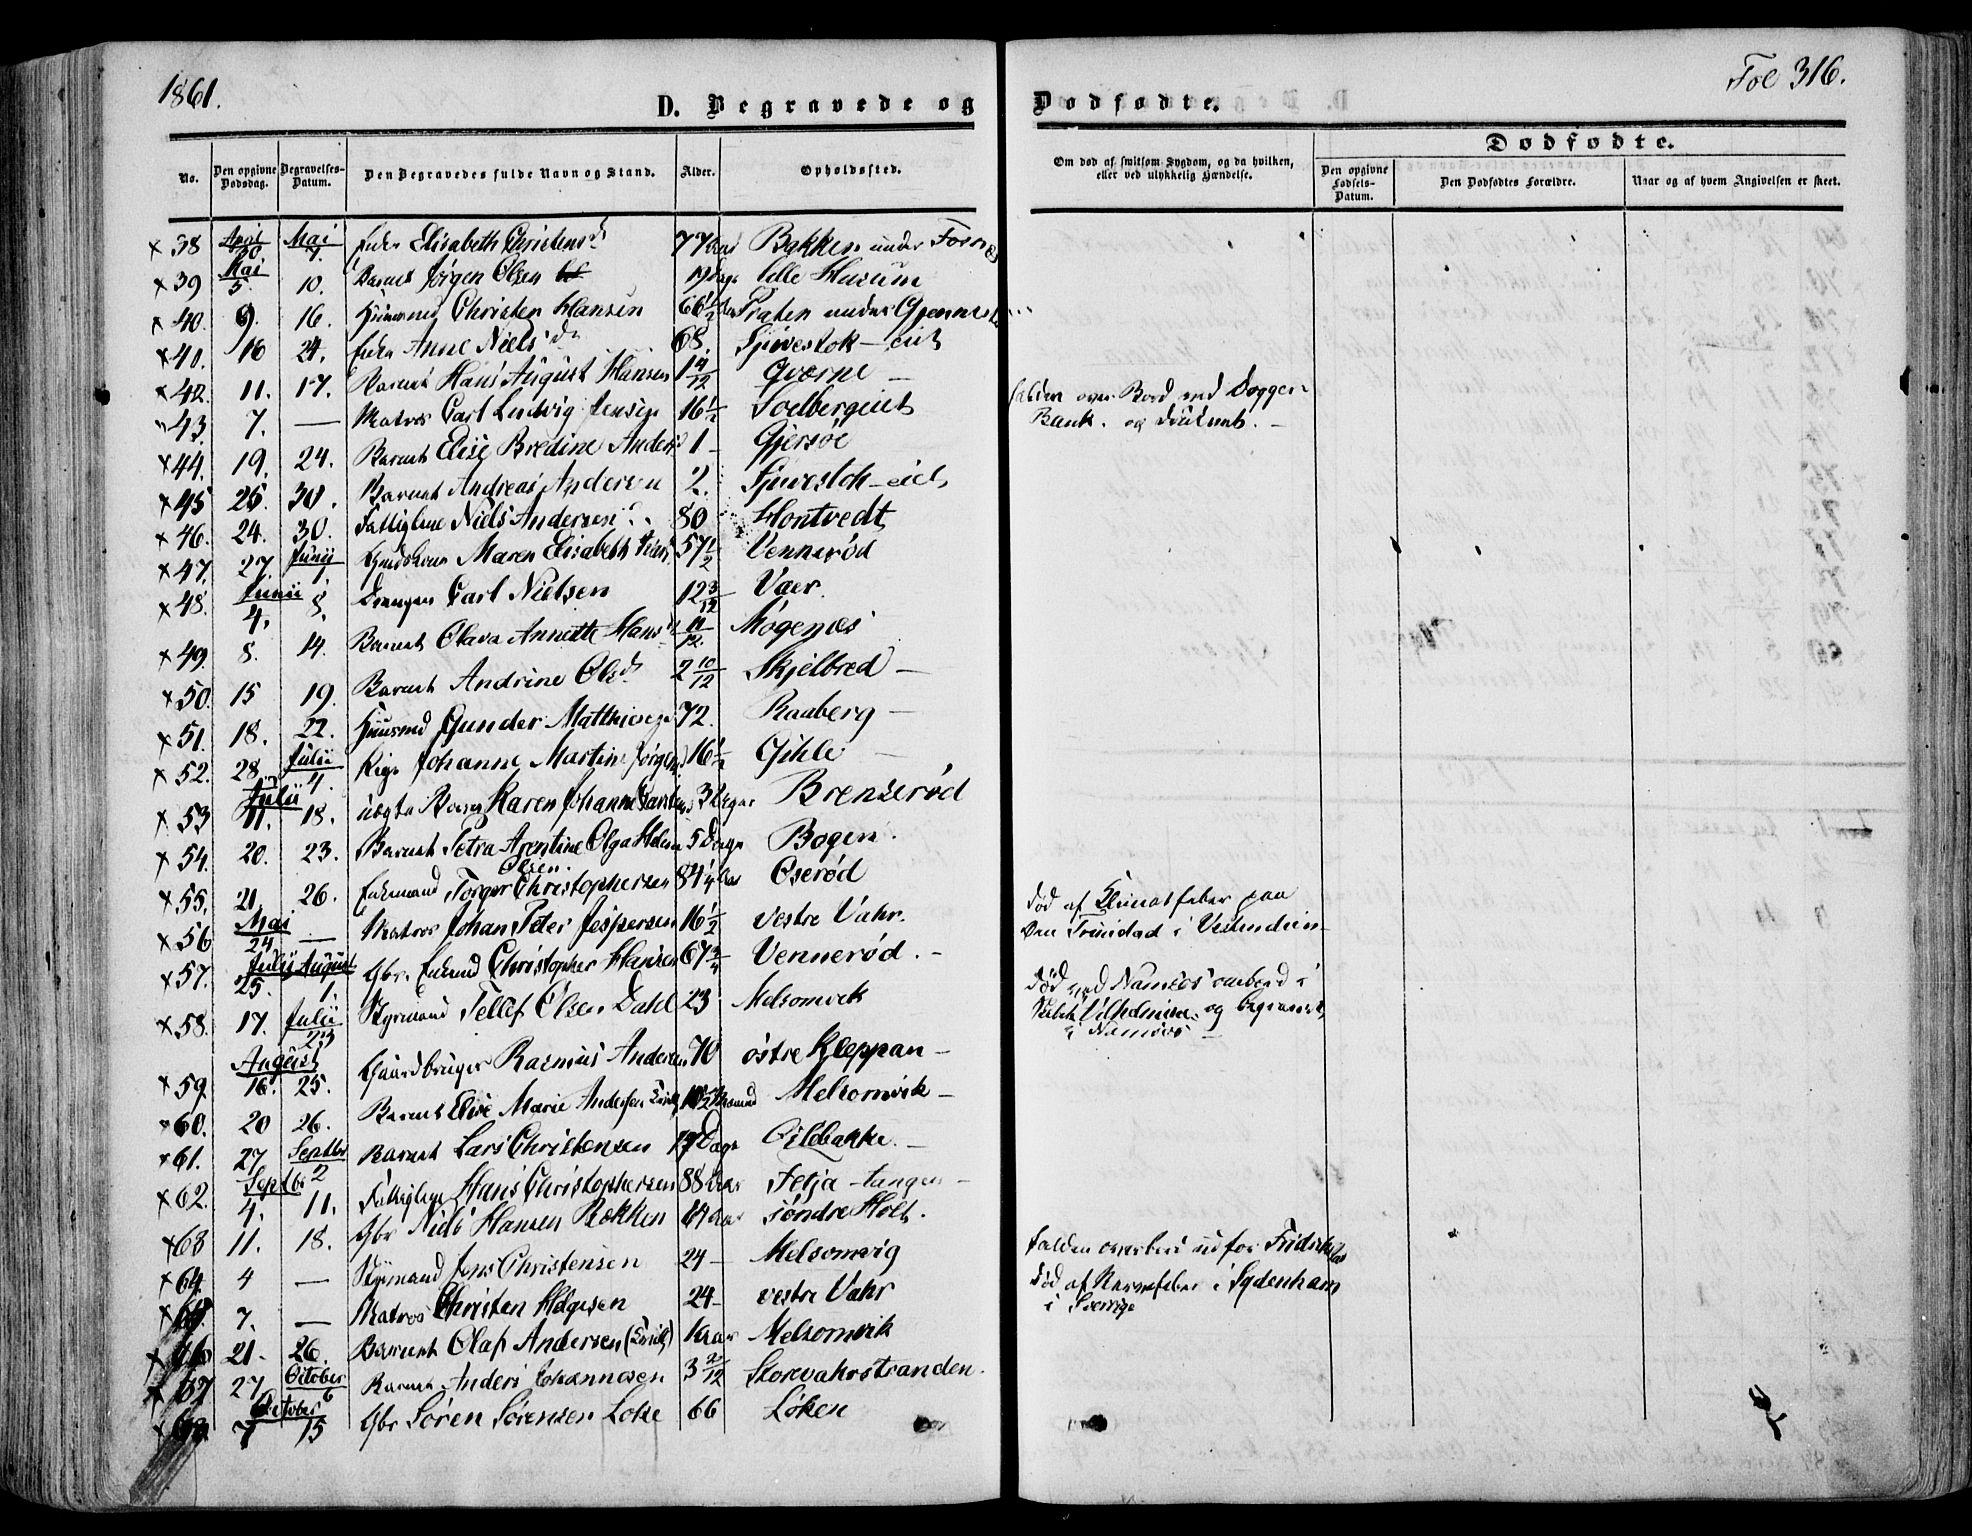 1861.
Fol 316.
D. Begravede og Dødfødte.
Dødfødte.
No. Den opgivne Dødsdag. Begravelses-Datum. Den Begravedes fulde Navn og Stand. Alder. Opholdssted.
Om død af smitsom Sygdom, og da hvilken, eller ved ulykkelig Hændelse. Den opgivne Fødsels-Datum. Den Dødfødtes Forældre. Naar og af hvem Angivelsen er skeet.
× 38 April 30. Mai 7. Enke Elisabeth Christensd 77 Aar Bakken under Fosnæs
× 39 Mai 5. 10. Barnet Jørgen Olsen Dage Lille Husum
× 40. 9. 16. Huusmd Christen Hansen 66 1/2 Aar Praten under
× 40. 16 24. Enke Anne Nielsd 68. Sjuestok-eiet
× 42. 11. 17. Barnet Hans August Hansen Qværne –
43. 7. — Matros Carl Ludvig Jensen 16 1/2 Solbergeiet falden over Bord ved Dogger-
Bank. og druknet. –
× 44. 19. 24. Barnet Elise Bredine Andersd 1 – Gjersøe
× 45 25. 30. Barnet Andreas Andersen 2. Sjuestok-eiet
× 46. 24. 30. Fattiglem Niels Andersen 80 Hontvedt
× 47. 27. Junij 1. Maren Elisabeth 57 1/2 Vennerød
× 48. Junii 4. 8. Drengen Carl Nielsen 12 3/12 Vaer.
× 49. 8. 14. Barnet Olava Annette Hansd 11/12 Mogenæs
× 50. 15 19. Barnet Andrine Olsd 2 10/12 Skjelbred –
× 51. 18. 22. Huusmd Gunder Mathiesen 72. Raaberg –
× 52. 28 Julii 4. Pige Johanne Martine Jørgens 16 1/2 Gihle –
× 53 Julii 11. 18. uægte Barn Karen Johanne 3 Dage Brenserød
× 54. 20. 23. Barnet Petra Axentine Olga Helene Olsen. 5 Dage Bogen.
× 55. 21. 26. Enkemand Torger Christophersen 84 1/4 Aar Oserød
× 56 Mai 24. — Matros Johan Peter Jespersen 16 1/2 vestre Vahr. død af Climatfeber paa
Øen Trinidad i Vestindien –
× 57. Julij 25. August 1. Gbr. Enkmd Christopher Hansen 67 3/4 Vennerød. –
× 58. 17. Julii 23 Styrmand Tellef Olsen Dahl 23 Melsomvik død ved Namsos ombord i
Vilhelmine og begravet
i Namsos –
× 59. August 16. 25. Gaardbruger Rasmus Andersen 70 østre Kleppan –
× 60. 20 26. Barnet Elise Marie Andersen Melsomvik –
× 61. 27 Septbr 2 Barnet Lars Christensen Dage Oilebakke. –
× 62. Septbr 4. 11. Fattiglem Hans Christophersen 88 Aar Fetja-tangen –
× 63 11. 18. Gbr Niels Hansen Bakken Aar søndre Holt.
× 64. 4 — Styrmand Jens Christensen 24 – Melsomvig falden overbord udfor
× 65. 7. — Matros Christen Helgesen 24 – vestre Vahr død af Nervefeber i Sydenham
i Sverrige
× 66 21. 26. Barnet Olaf Andersen 1 Aar Melsomvik
× 67 27. October 6 Barnet Anders Johannesen 3 2/12 Storevahrstranden.
× 68 October 7 15 Gbr Søren Sørensen Løke 66 Løken